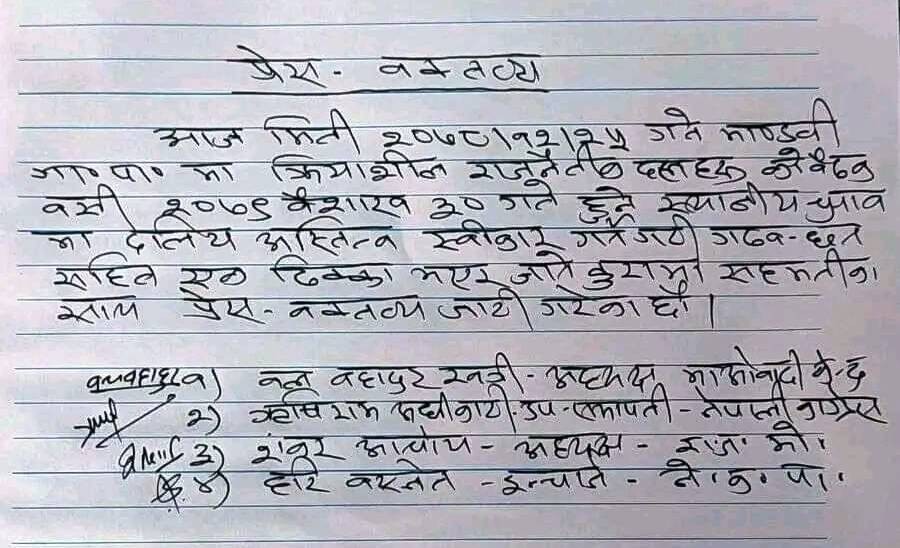 प्रेस - वक्तव्य
आज मिती २०७८।१२।२५ गते माण्डवी
गा॰पा॰ मा क्रियाशील राजनैतीक दलहरु को बैठक
वसी २०७९ बैशाख ३० गते हुने स्थानीय चुनाव
मा दलिय अस्तित्व स्वीकार गर्ने गरी गठब-धन
सहित एक ढिक्का भएर जाने कुरामा सहमतीका
साथ प्रेस - वक्तव्य जारी गरेका छौ।
बलबहादुर १) वल वहादुर खत्री - अध्यक्ष माओवादी के-द्र
२) ऋषि राम अधीकारी - उप-सभापती - नेपाली काग्रेस
३) शंकर आचार्य - अध्यक्ष - रा.ज. मो.
४) हरि वस्नेत - इन्चार्ज - ने. क. पा.